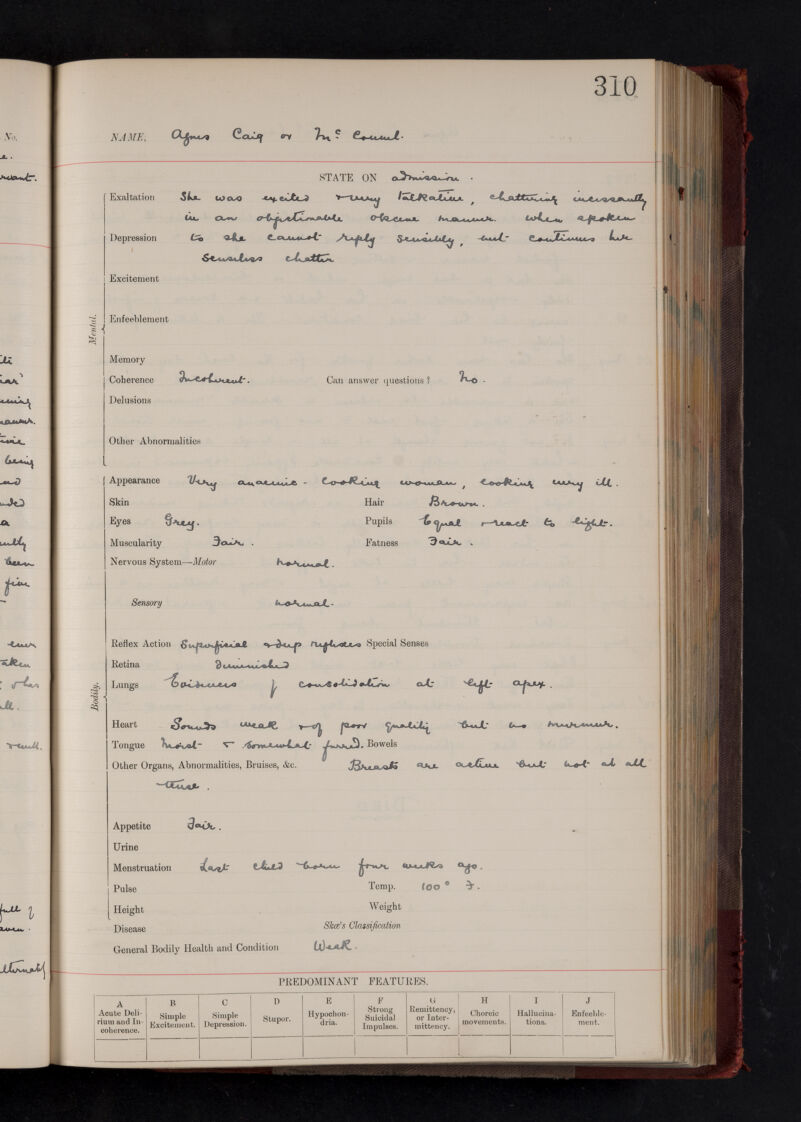 310
No.
NAME. Agnes Caig or Mc Connel.
STATE ON admission.
Mental.
Exaltation She was excited & very talkative, chattering incessantly
in an objectionable obscene manner. When spoken
Depression to she cannot reply sensibly, but continues her
senseless chatter
Excitement
Enfeeblement
Memory
Coherence Incoherent. Can answer questions? No.
Delusions
Other Abnormalities
Bodily.
Appearance Very anaemic-looking woman, looking very ill.
Skin Hair Brown.
Eyes Grey. Pupils Equal & react to light.
Muscularity Fair. Fatness Fair.
Nervous System—Motor Normal.
Sensory Normal.
Reflex Action Superficial & deep reflexes Special Senses
Retina diminished
Lungs Evidences of consolidation at left apex.
Heart Sounds weak & of poor quality but no murmur.
Tongue Moist & somewhat furred. Bowels
Other Organs, Abnormalities, Bruises, &c. Breasts are active but not at all
tense.
Appetite Fair.
Urine
Menstruation Last child born four weeks ago.
Pulse Temp. 100° F.
Height Weight
Disease Skæ's Classification
General Bodily Health and Condition Weak.
PREDOMINANT FEATURES.
A B C D E F G H I J
Acute Delirium and Incoherence. Simple Excitement. Simple Depression. Stupor. Hypochondria. Strong Suicidal Impulses. Remittency, or Intermittency. Choreic movements. Hallucinations. Enfeeblement.